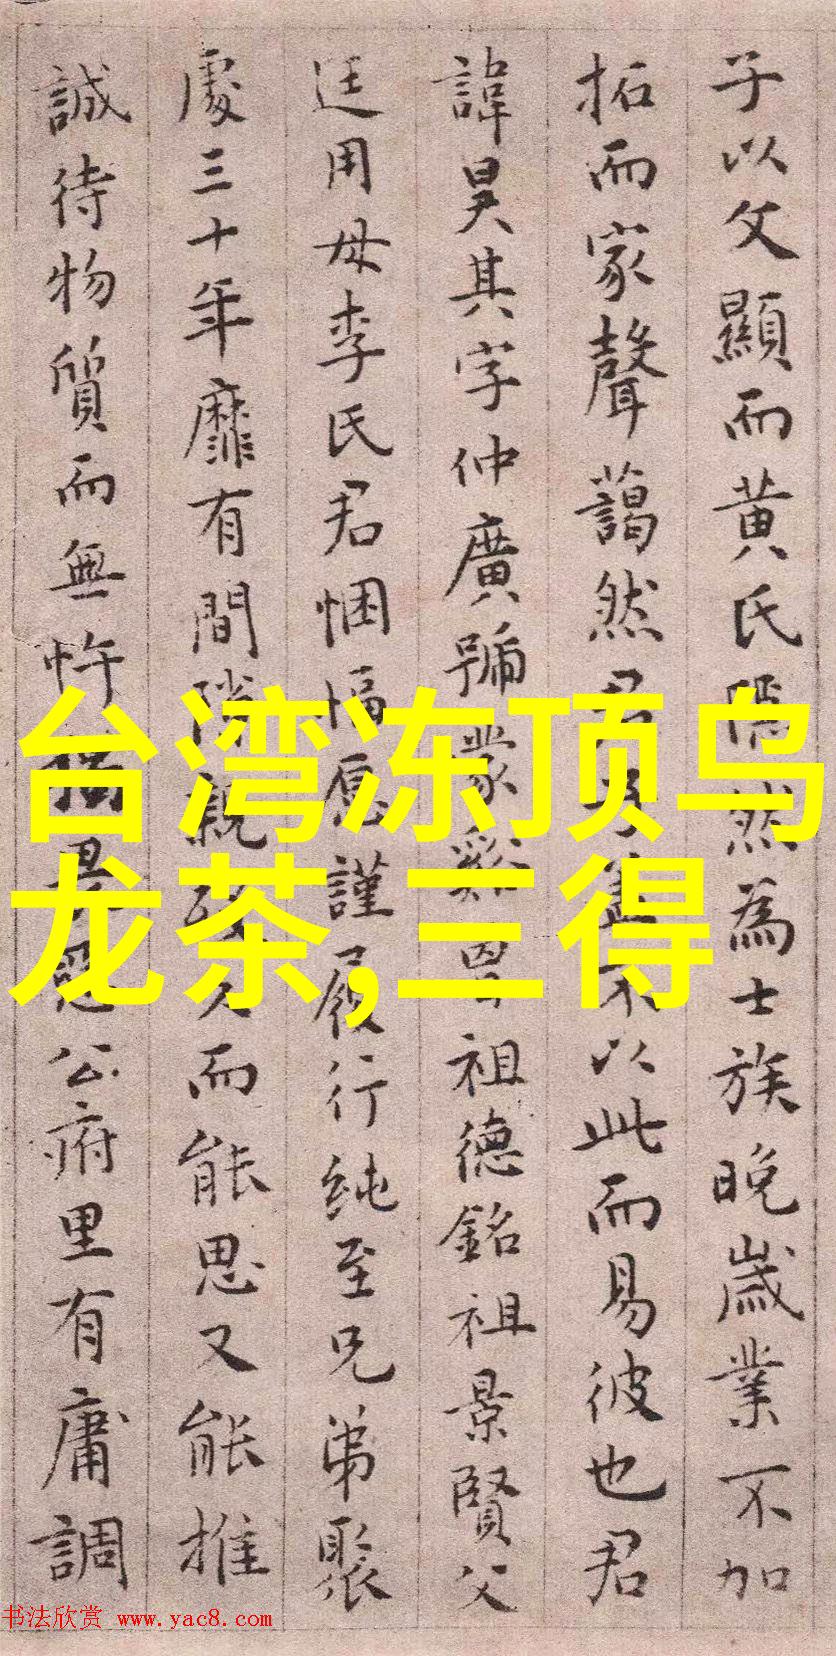 子以父顯而黄氏隱然為士族晚歲業不加
拓而家聲藹然君子蓋不以此而易彼也君
諱昊其字仲廣號蒙谿曾祖德銘祖景賢父
廷用母李氏君悃愊愿謹履行純至兄弟聚
處三十年靡有間隙親歿久而能思又能推
誠待物質而無忤公府里有庸調
台湾冻顶乌
龙茶,三得
书法欣赏 www.yac8.com